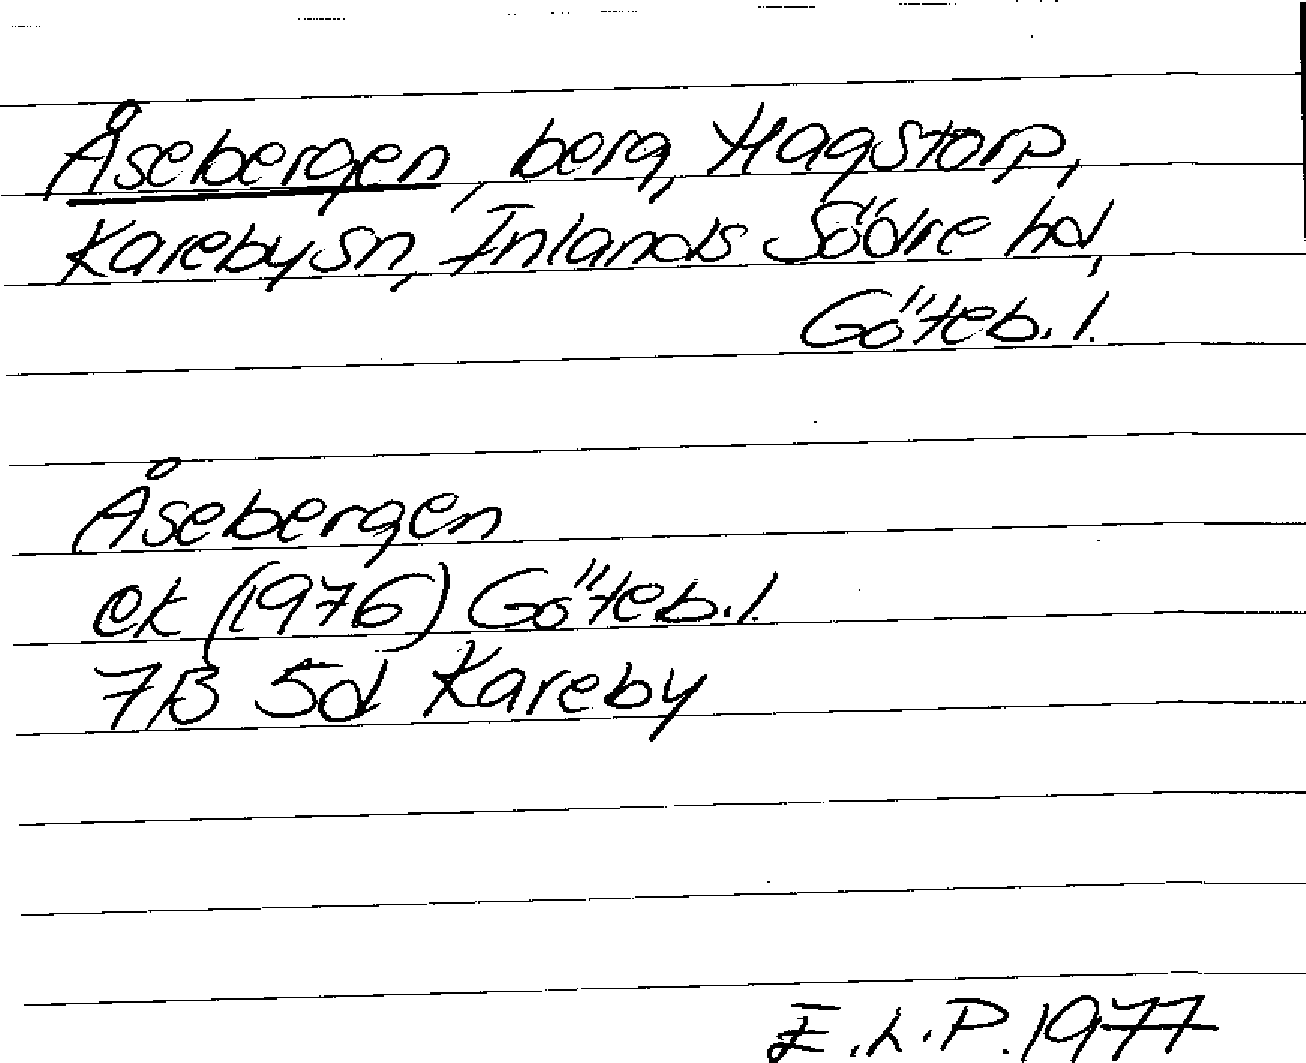 Åsebergen, berg, Hagstorp,
Kareby sn, Inlands Södre hd,
Göteb. l.
Åsebergen
ek (1976) Göteb. l.
7B 5d Kareby
E.L.P. 1977